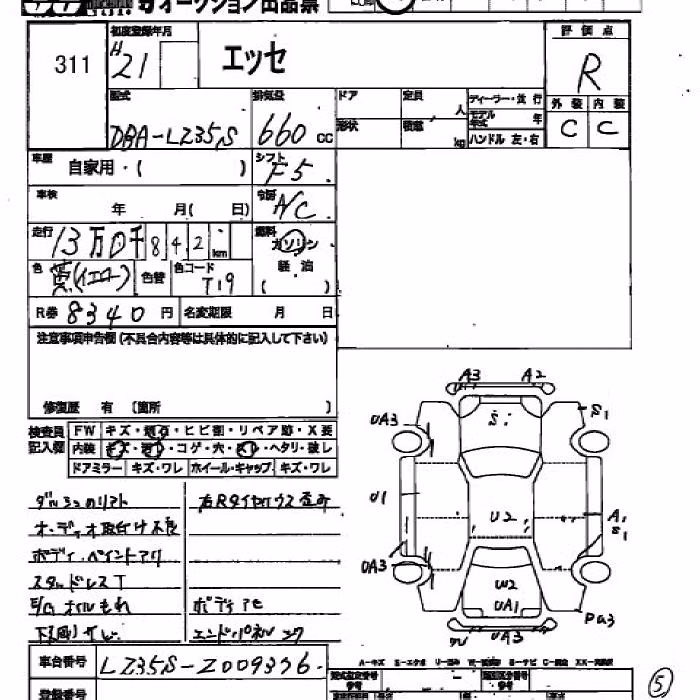 オークション出品票
311
初度登録年月
H
21
エッセ
評価点
R
外装 内装
C C
型式
DBA-LZ35S
排気量
660 CC
ドア
定員 人
形状
積載 kg
ディーラー・並行
モデル年式 年
ハンドル 左・右
車歴 自家用・( )
シフト
F5
車検 年 月( 日)
冷房
A/C
走行
13万0千842 km
燃料
ガソリン
軽油
( )
色
黄(イエロー)
色替
色コード
T19
R券 8340 円
名変期限 月 日
注意事項申告欄(不具合内容等は具体的に記入して下さい)
修復歴 有 〔箇所 〕
検査員記入欄
FW キズ・飛石・ヒビ割・リペア跡・X要
内装 キズ・汚れ・コゲ・穴・スレ・ヘタリ・破レ
ドアミラー キズ・ワレ ホイール・キャップ キズ・ワレ
オーディオ取付け不良
ボディ・ペイントアリ
スタッドレスT
E/Gオイルもれ
ボディアセ
エンドパネル
車台番号 LZ35S-2009336
登録番号
A3 A2
UA3
S1
S
U1
U2
A1
S1
UA3
W2
UA1
UA3
PA3
5